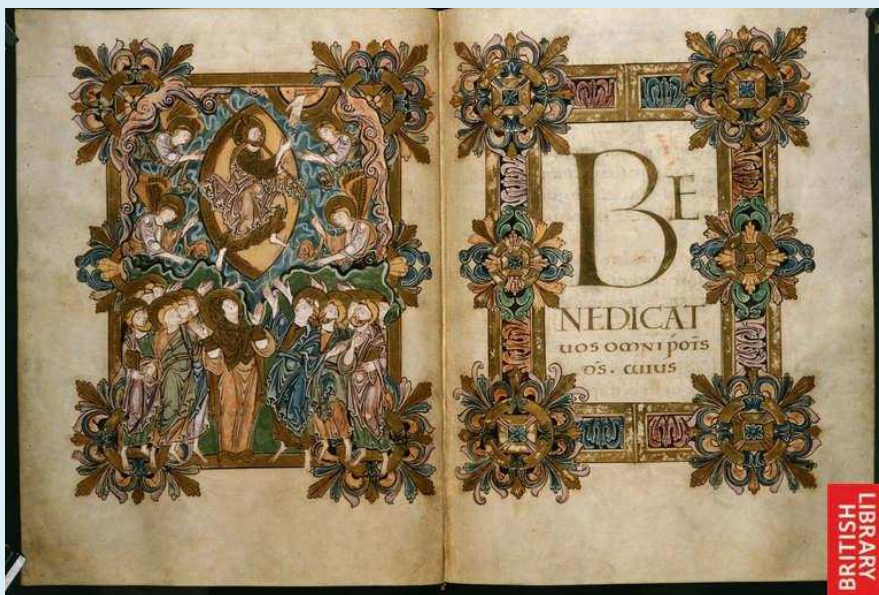 BE
NEDICAT
uos omnipoƚs
ds̄. cuius
BRITISH
LIBRARY